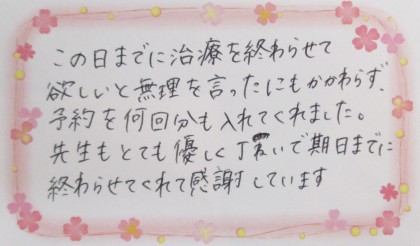 この日までに治療を終わらせて
欲しいと無理を言ったにもかかわらず、
予約を何回分も入れてくれました。
先生もとても優しく丁寧いで期日までに
終わらせてくれて感謝しています